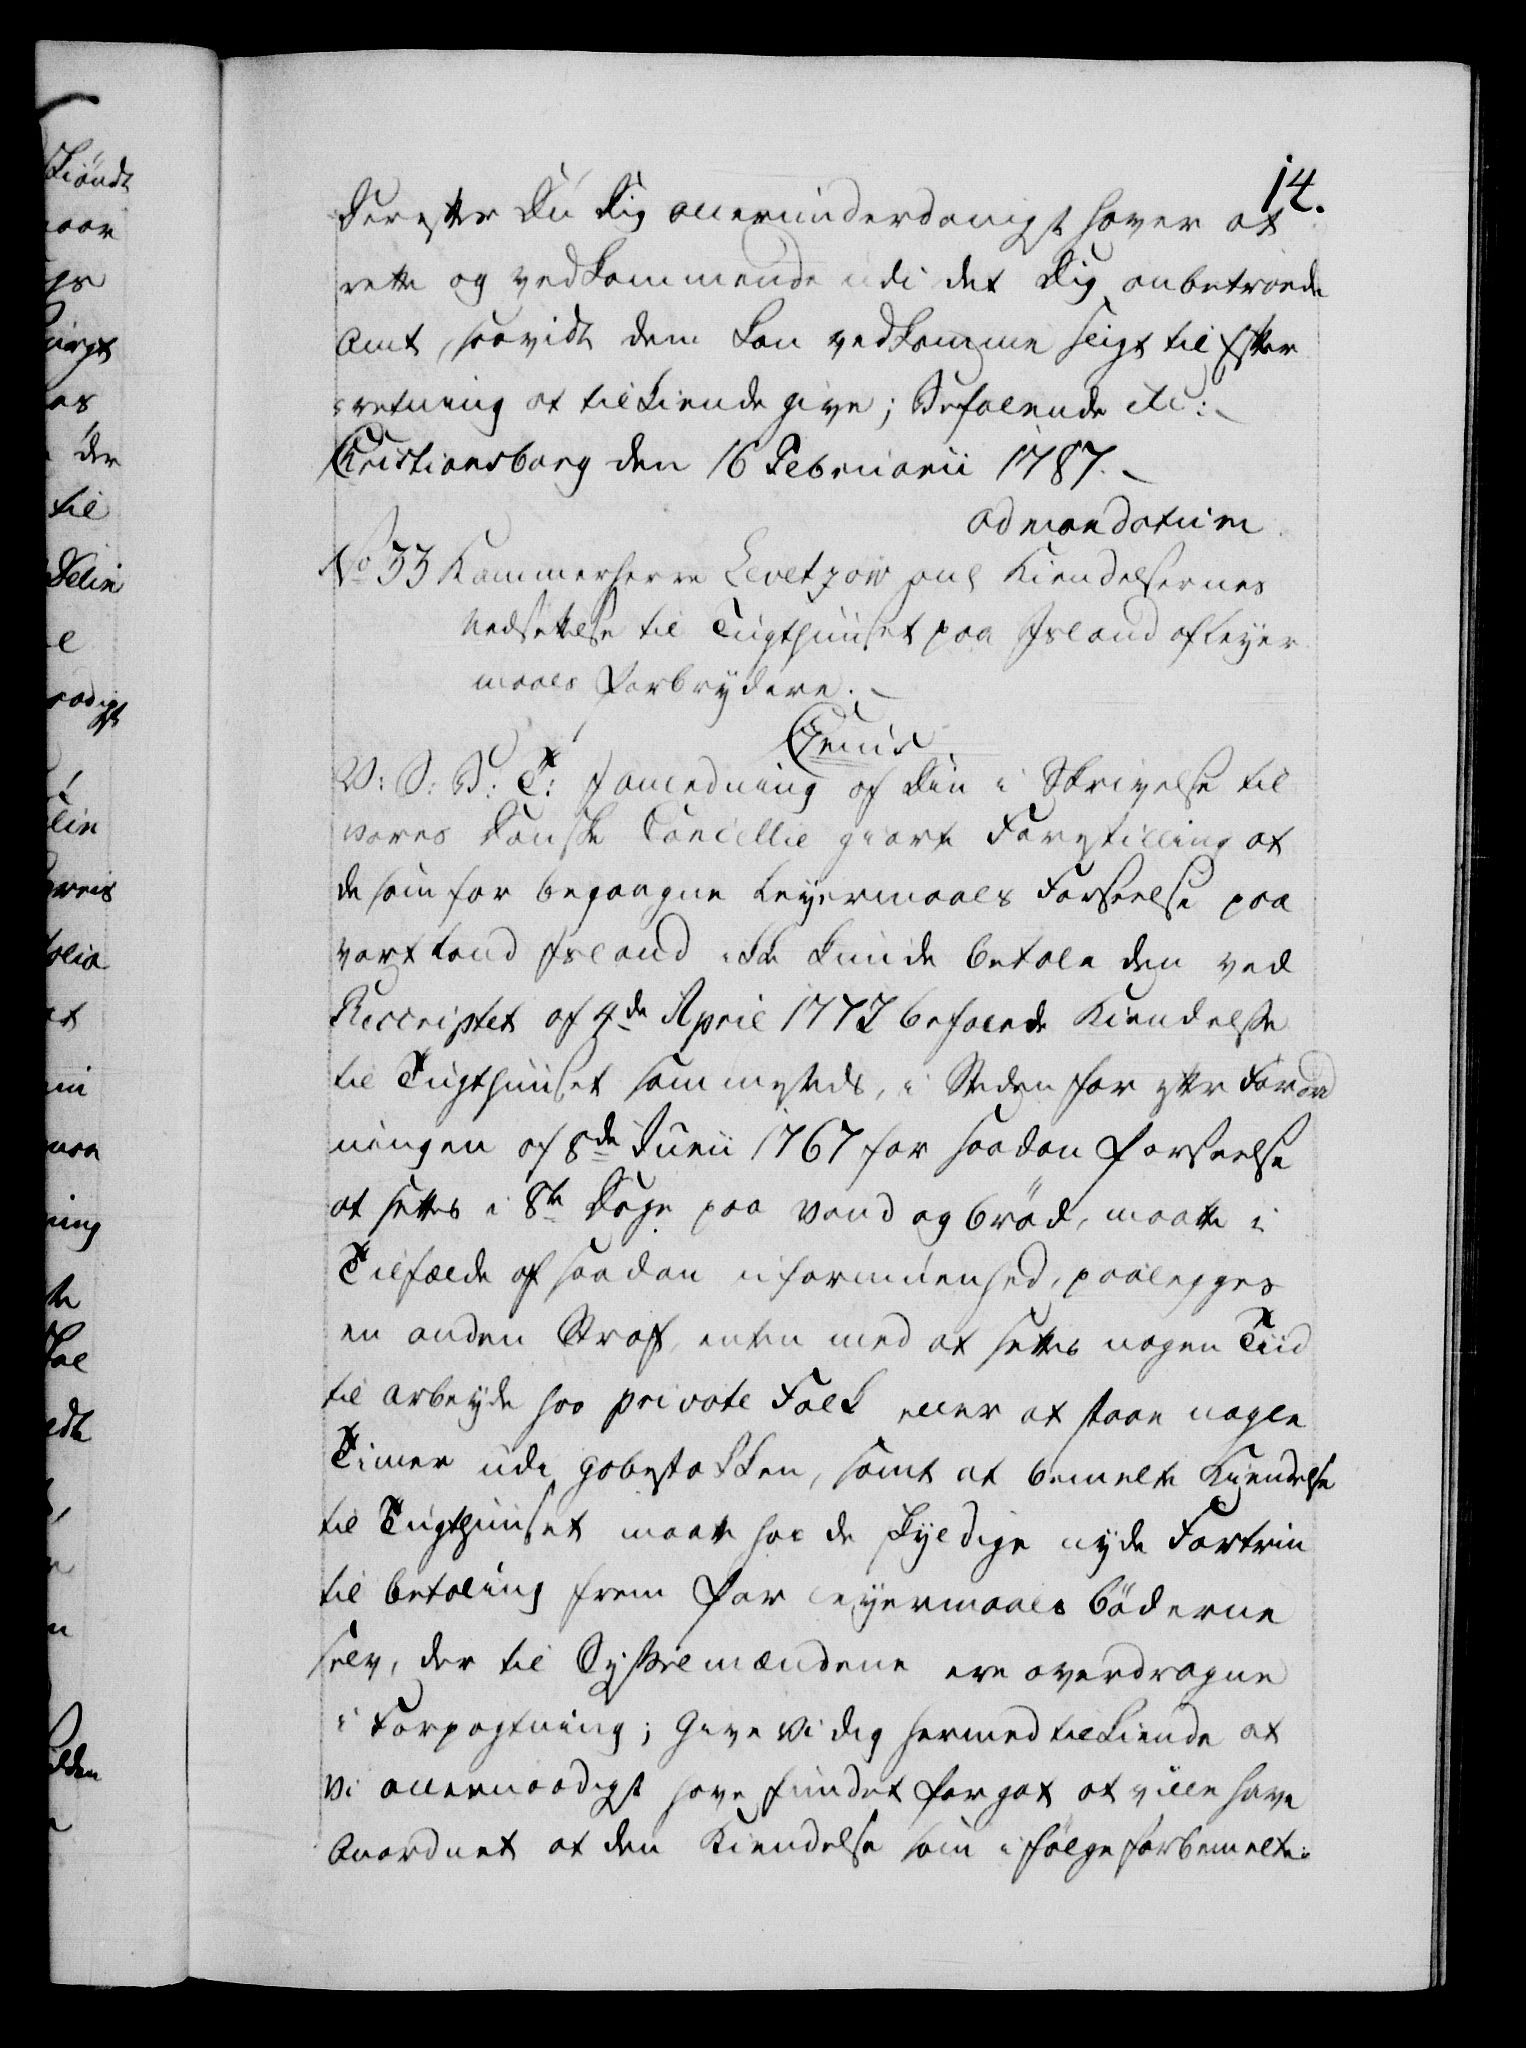 14.
Derefter Du Dig allerunderdanigst haver at
rette og vedkommende udi det Dig anbetroede
Amt, saavidt dem kan vedkomme sligt til Efter
retning at tilkiende give; Befalende etc:
Christiansborg den 16 Februarii 1787.
ad mandatum
No 33 Kammerherre Levetzow anl Kiendelsernes
Nedsettelse til Tugthuuset paa Island af Leyer
maals Forbrydere.
C7enus
V: S: B: T: I anledning af Din i Skrivelse til
vores Danske Cancellie giorte Forestilling at
de som for begaagne Leyermaals Forseelse paa
vort Land Island ikke kunde betale den ved
Rescriptet af 9de April 1773 befalede Kiendelse
til Tugthuuset sammesteds, i Steden for efter Forord
ningen af 8de Junii 1767 for saadan Forseelse
at settes i 8te Dage paa vand og brød, maatte i
Tilfælde af saadan uformuenhed, paalegges
en anden Straf, enten med at settes nogen Tiid
til arbeyde hos private Folk eller at staae nogle
Timer udi gabestokken, samt at bemelte Kiendelse
til Tugthuuset maatte hos de skyldige nyde Fortrin
til betaling frem for Leyermaals bøderne
selv, der til Sysselmændene ere overdragne
i Forpagtning; Give Vi dig hermed tilkiende at
Vi allernaadigst have fundet for got at ville have
Anordnet at den Kiendelse som i følge forbemelte